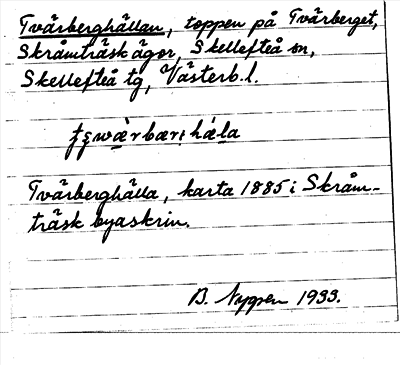 Tvärberghällan, toppen på Tvärberget,
Skråmträsk ägor, Skellefteå sn,
Skellefteå tg, Västerb. l.
Tvärberghälla, karta 1885 i Skråm-
träsk byaskrin.
B. Nygren 1933.